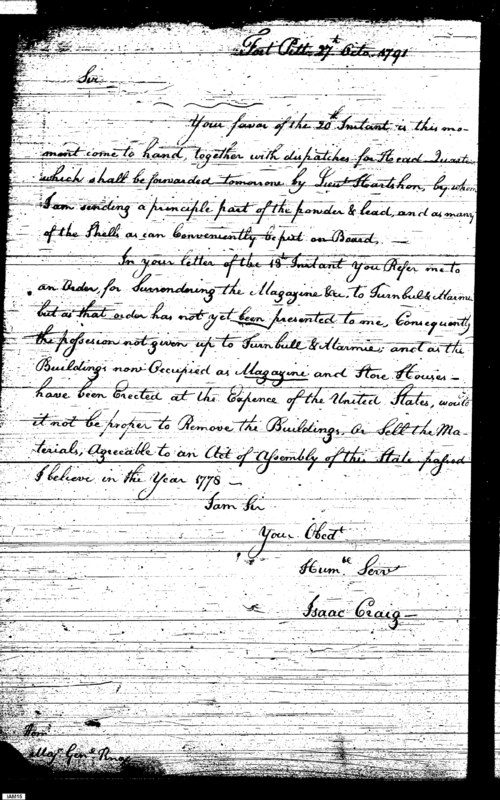 Fort Pitt 27th Octo. 1791
Sir
Your favor of the 20th Instant is this mo-
ment come to hand, together with dispatches for Head Quarters
which shall be forwarded tomorrow by Lieut Hartshon, by whom
I am sending a principle part of the powder & lead, and as many
of the Shells as can Conveniently be put on Board, —
In your letter of the 18th Instant You Refer me to
an Order, for Surrendering the Magazine &c. to Turnbull & Marmie
but as that order has not yet been presented to me, Consequently
the possesion not given up to Turnbull & Marmie; and as the
Buildings now Occupied as Magazine and Store Houses —
have been Erected at the Expence of the United States, would
it not be proper to Remove the Buildings, Or Sell the Ma-
terials, Agreeable to an Act of Assembly of this State passed
I believe in the Year 1778 —
I am Sir
Your Obedt
Humble Serv
Isaac Craig —
Majr Genl Knox
IAM15